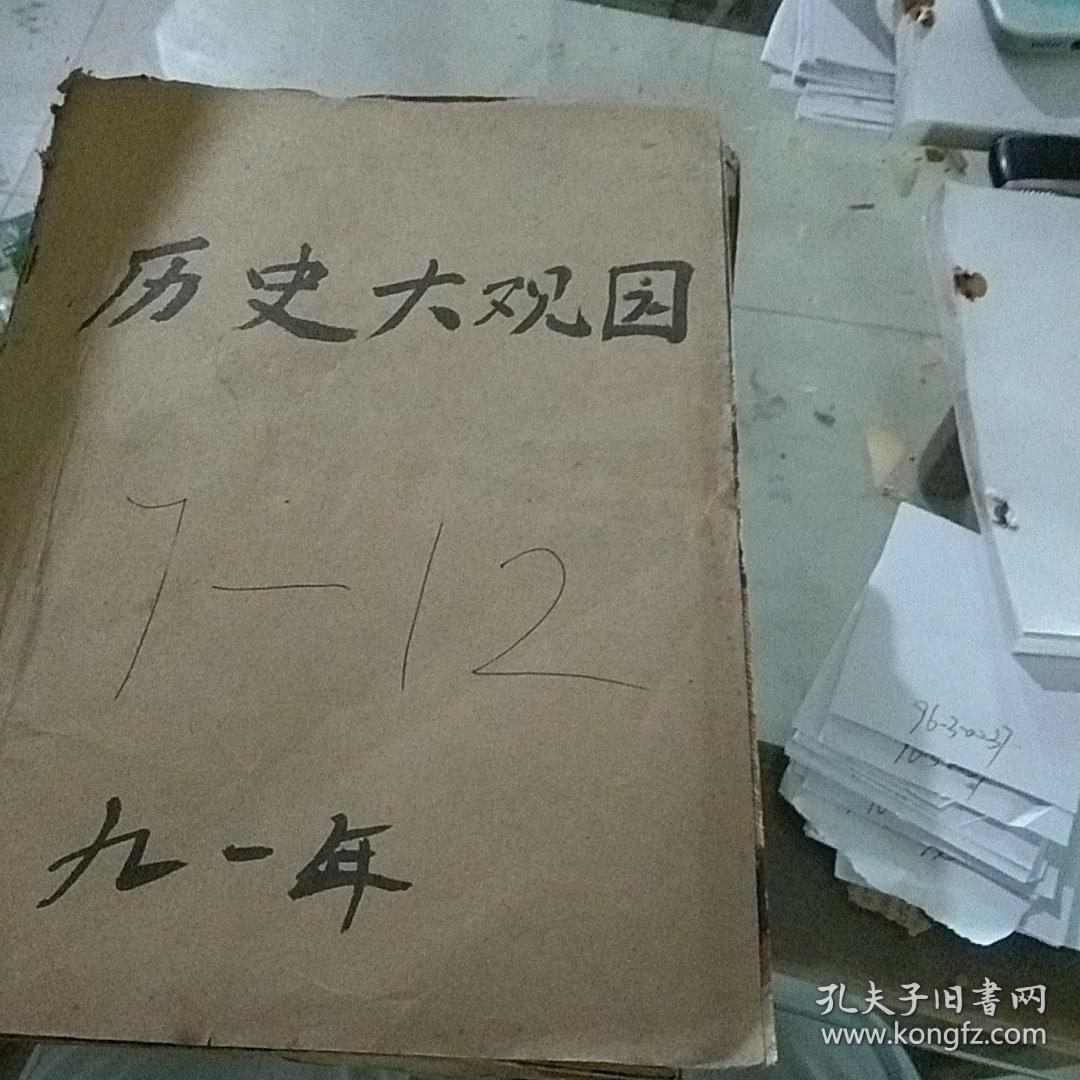 历史大观园
7—12
九一年
96-2-0037
孔夫子旧書网
www.kongfz.com